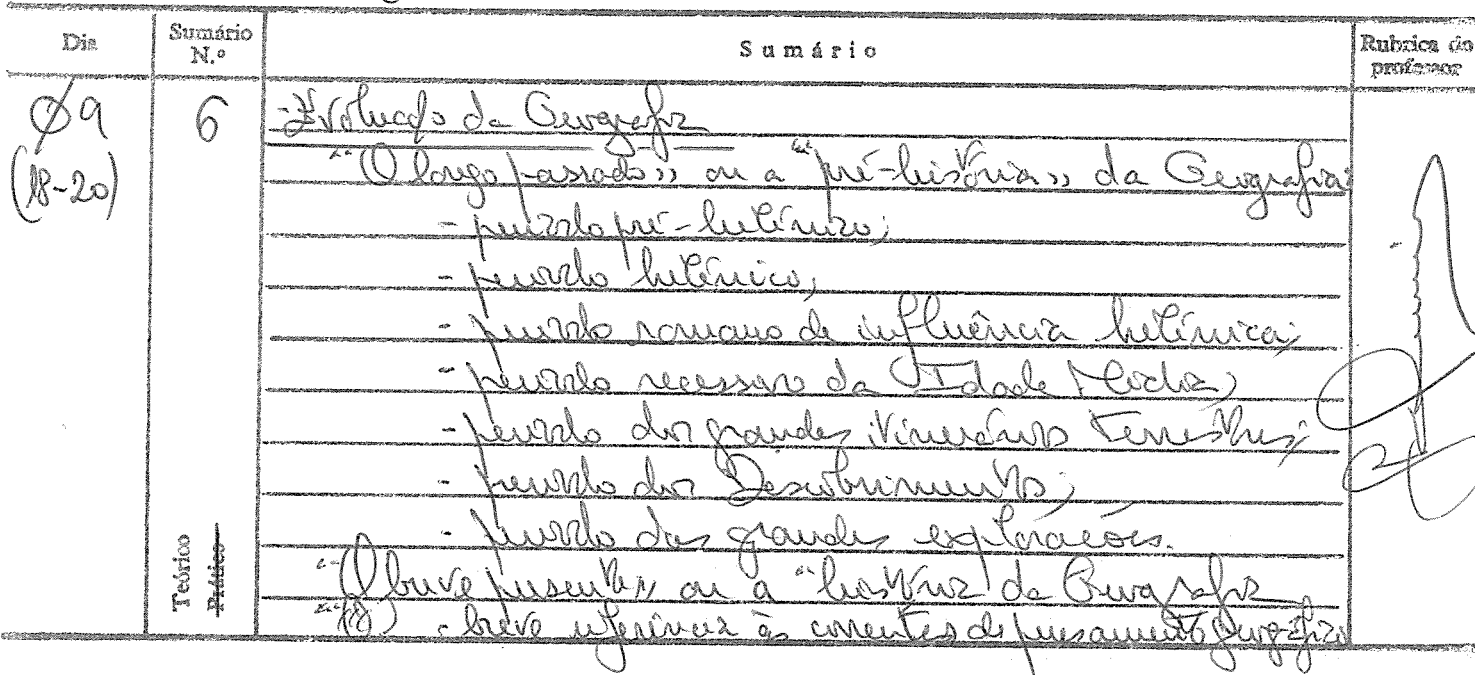 Dia
Sumário N.º
Sumário
Rubrica do professor
09
(18-20)
6
Teórico
Prático
- Evolução da Geografia
"O longo passado" ou a "pré-história" da Geografia:
- período pré-helénico;
- período helénico;
- período romano de influência helénica;
- período recessivo da Idade Média;
- período dos grandes itinerários terrestres;
- período dos Descobrimentos;
- período das grandes explorações.
"O breve presente" ou a "história da Geografia
- breve referência às correntes do pensamento geográfico